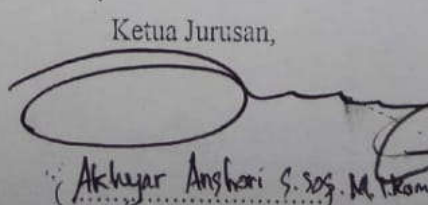 Ketua Jurusan,
(Akhyar Anshori S.Sos. M.I.Kom